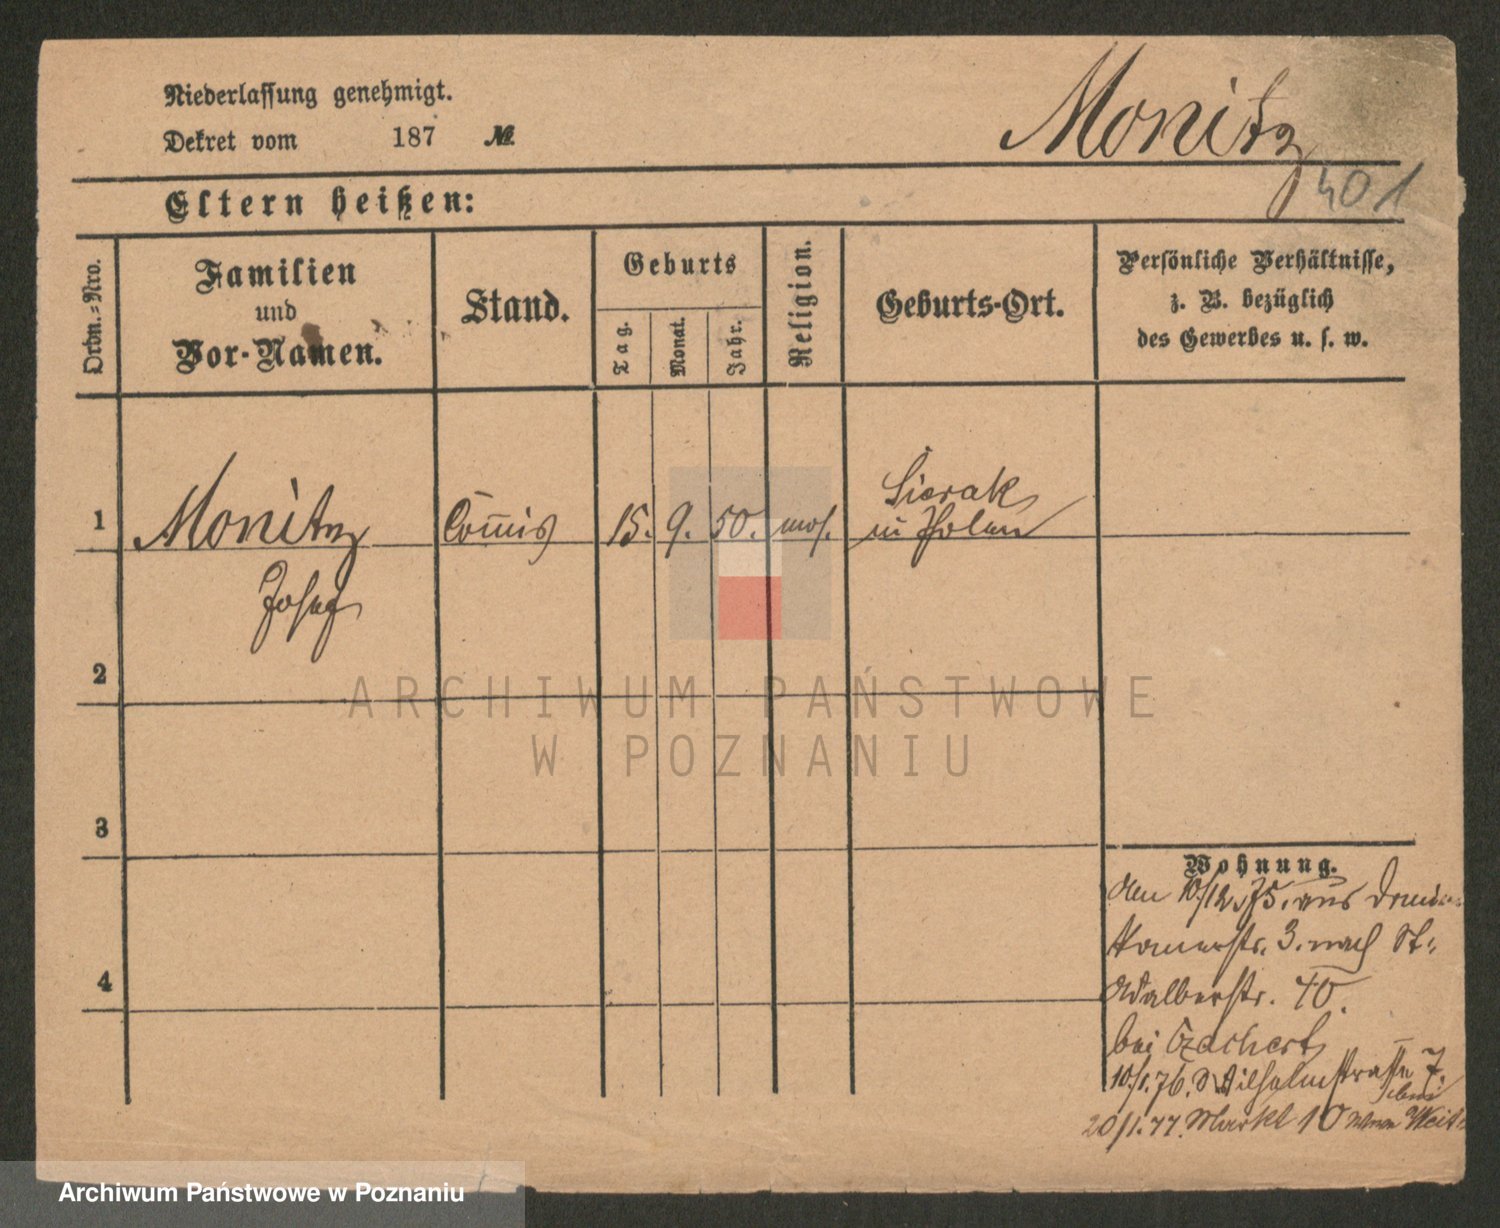 Niederlassung genehmigt.
Dekret vom 187 №
Monitz
401
Eltern heißen:
Ordn.=Nro.
Familien
und
Vor-Namen.
Stand.
Geburts
Tag.
Monat.
Jahr.
Religion.
Geburts-Ort.
Persönliche Verhältnisse,
z. B. bezüglich
des Gewerbes u. s. w.
1 Monitz Com̄is 15. 9. 50. mos. Sierak
in Polen
Josef
2
3
4
Wohnung.
den 10/12 75. aus
3. nach St:
Adalbertstr. 40.
bei Czachert
10/1. 76. Wilhelmstraße 7.
20/1. 77. Markt 10
ARCHIWUM PAŃSTWOWE
W POZNANIU
Archiwum Państwowe w Poznaniu